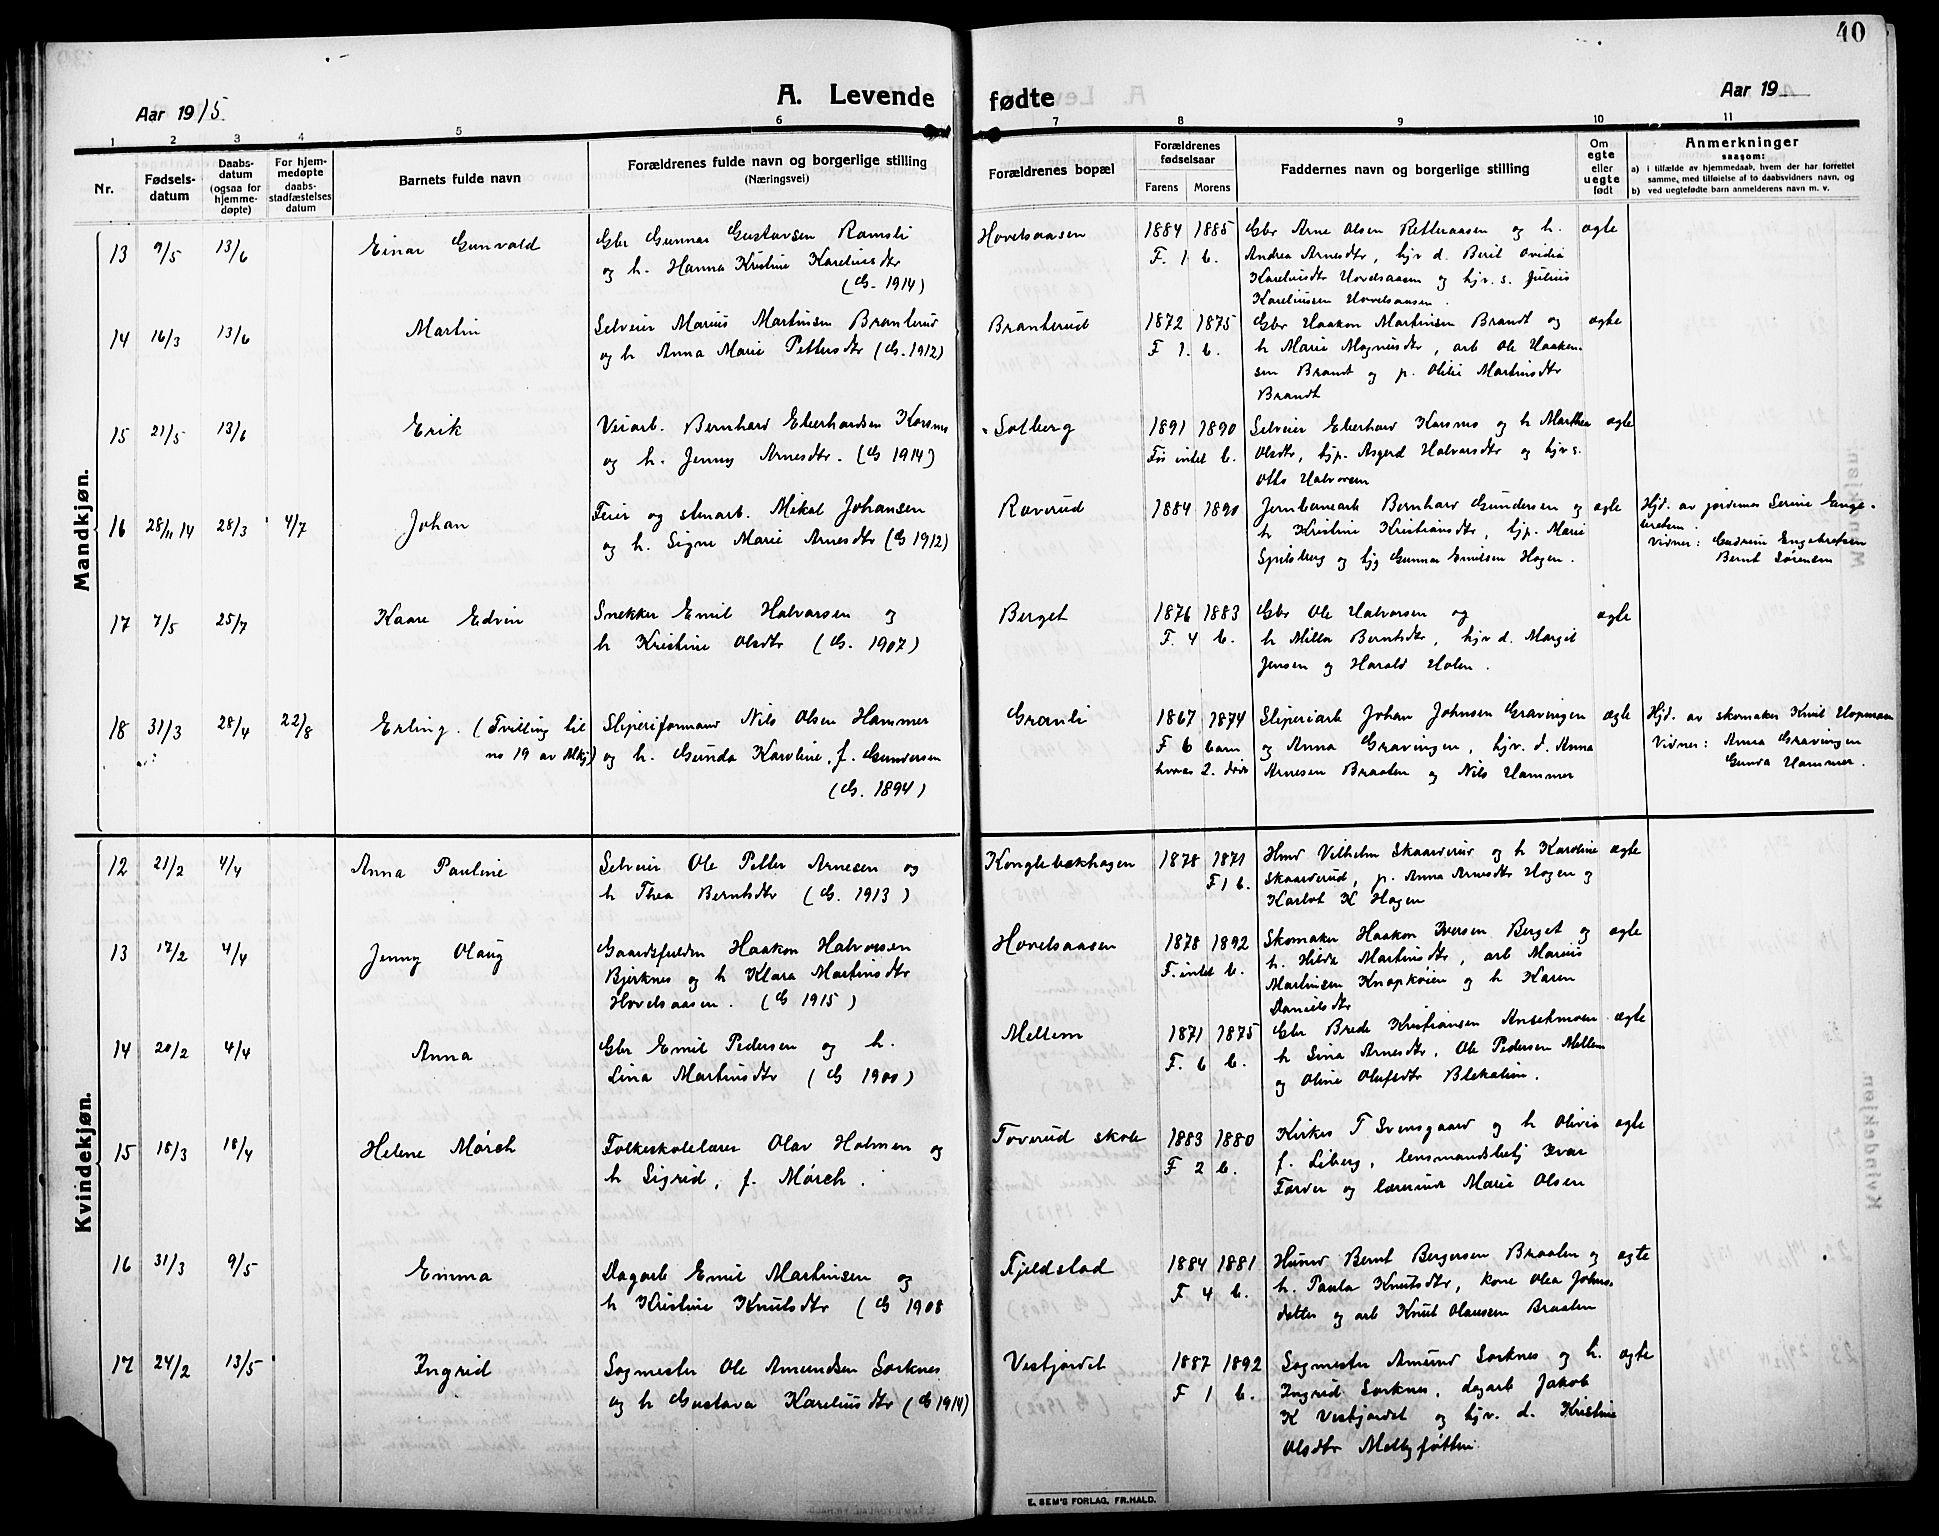 40
A. Levende fødte
Aar 1915.
Aar 19
1 2 3 4 5 6 7 8 9 10 11
Nr.
Fødsels-
datum
Daabs-
datum
(ogsaa for
hjemme-
døpte)
For hjem-
medøpte
daabs-
stadfæstelses
datum
Barnets fulde navn
Forældrenes fulde navn og borgerlige stilling
(Næringsvei)
Forældrenes bopæl
Forældrenes
fødselsaar
Farens Morens
Faddernes navn og borgerlige stilling
Om
egte
eller
uegte
født
Anmerkninger
saasom:
a) i tilfælde av hjemmedaab, hvem der har forrettet
samme, med tilføielse av to daabsvidners navn, og
b) ved uegtefødte barn anmelderens navn m. v.
Mandkjøn.
13 9/5 13/6 Einar Gunvald Gbr Gunnar Gustavsen Ramsli Hovelsaasen 1884 1885 Gbr Arne Olsen Retteraasen og h. egte
og h. Hanna Kristine Kareliusdtr F. 1 b. Andrea Arnesdtr, hjv d. Beril Ovidia
(G. 1914) Kareliusdtr Hovelsaasen og hjv. s. Julius
Kareliussen Hovelsaasen.
14 16/3 13/6 Martin Selveier Marius Martinsen Branterud Branterud 1872 1875 Gbr Haakon Martinsen Brandt og egte
og h Anna Marie Pettersdtr (G. 1912) F 1. b. h Marie Magnusdtr, arb Ole Haaken-
sen Brandt og p. Otilie Martinsdtr
Brandt
15 21/5 13/6 Erik Veiarb. Bernhard Eberhardsen Korsmo Solberg 1891 1890 Selveier Eberhard Korsmo og h Marthea egte
og h. Jenny Arnesdtr. (G 1914) Før intet b. Olsdtr, hjp. Asgerd Halvorsdtr og hjv s.
Otto Halvorsen
16 28/11 14 28/3 4/7 Johan Feier og stenarb. Mikal Johansen Raverud 1884 1890 Jernbanearb Bernhard Gundersen og egte Hjd. av jordemor Serine Enge-
og h. Signe Marie Arnesdtr (G 1912) h Kristine Kristiansdtr, hjp. Marie bretsen.
Spitsberg og hjg Gunnar Emilsen Hagen. Vidner: Gudrun Engebretsen
Bernt Sørensen
17 7/5 25/7 Kaare Edvin Snekker Emil Halvorsen og Berget 1876 1883 Gbr Ole Halvorsen og egte
h Kristine Olsdtr (G. 1907) F. 4 b. h Milla Berntsdtr, hjv d. Margit
Jensen og Harald Holen.
18 31/3 28/4 22/8 Erling. (Tvilling til Sliperiformand Nils Olsen Hammer Granli 1867 1874 Sliperiarb Johan Johnsen Gravingen egte Hjd. av skomaker Knut Hopman
no 19 av Kvkj) og h. Gunda Karoline, f. Gundersen F 6 barn og Anna Gravingen, hjv. d. Anna Vidner: Anna Gravingen
(G. 1894) hvorav 2. døde Arnesen Braaten og Nils Hammer Gunda Hammer.
Kvindekjøn.
12 21/2 4/4 Anna Pauline Selveier Ole Petter Arnesen og Konglebækhagen 1878 1871 Hmd Vilhelm Skaarderud og h Karoline egte
h Thea Berntsdtr (G. 1913) F 1 b. Skaarderud, p. Anna Arnesdtr Hagen og
Karlot K Hagen
13 17/2 4/4 Jenny Olaug Gaardsfuldm Haakon Halvorsen Hovelsaasen 1878 1892 Skomaker Haakon Iversen Berget og egte
Bjerknes og h Klara Martinsdtr F. intet b. h. Hilda Martinsdtr, arb Marius
Hovelsaasen. (G 1915) Martinsen Knapkøien og h Karen
Danielsdtr
14 20/2 4/4 Anna Gbr Emil Pedersen og h. Mellem 1871 1875 Gbr Brede Kristiansen Anselmoen egte
Lina Martinsdtr (G 1900) F. 6 b. h Lina Arnesdtr, Ole Pedersen Mellem
og Oline Olufsdtr
15 18/3 18/4 Helene Mörch Folkeskolelærer Olav Holmen og Toverud skole 1883 1880 Kirkes T Svensgaard og h Olivia egte
h Sigrid, f. Mörch. F 2 b. f. Liberg, lensmandsbetj Ivar
Færder og lærerinde Marie Olsen
16 31/3 9/5 Emma Dagarb Emil Martinsen og Fjeldstad 1884 1881 Husmd Bernt Bergersen Braaten og egte
h Kristine Knutsdtr (G 1908 F 4 b. h. Paula Knutsdtr, kone Olea Johns-
datter og arb Knut Olaussen Braaten
17 24/2 13/5 Ingrid Sagmester Ole Amundsen Sorknes Vesfjordet 1887 1892 Sagmester Amund Sorknes og h. egte
og h Gustava Kareliusdtr (G 1914) F 1 b. Ingrid Sorknes, dagarb Jakob
K Vesfjordet og hjv. d. Kristine
Olsdtr
E. SEM'S FORLAG, FR.HALD.